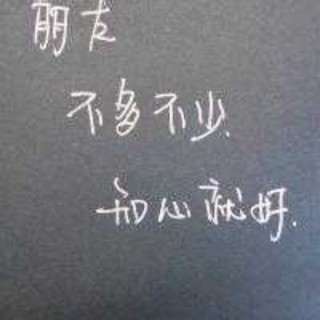 朋友
不多不少.
知心就好.